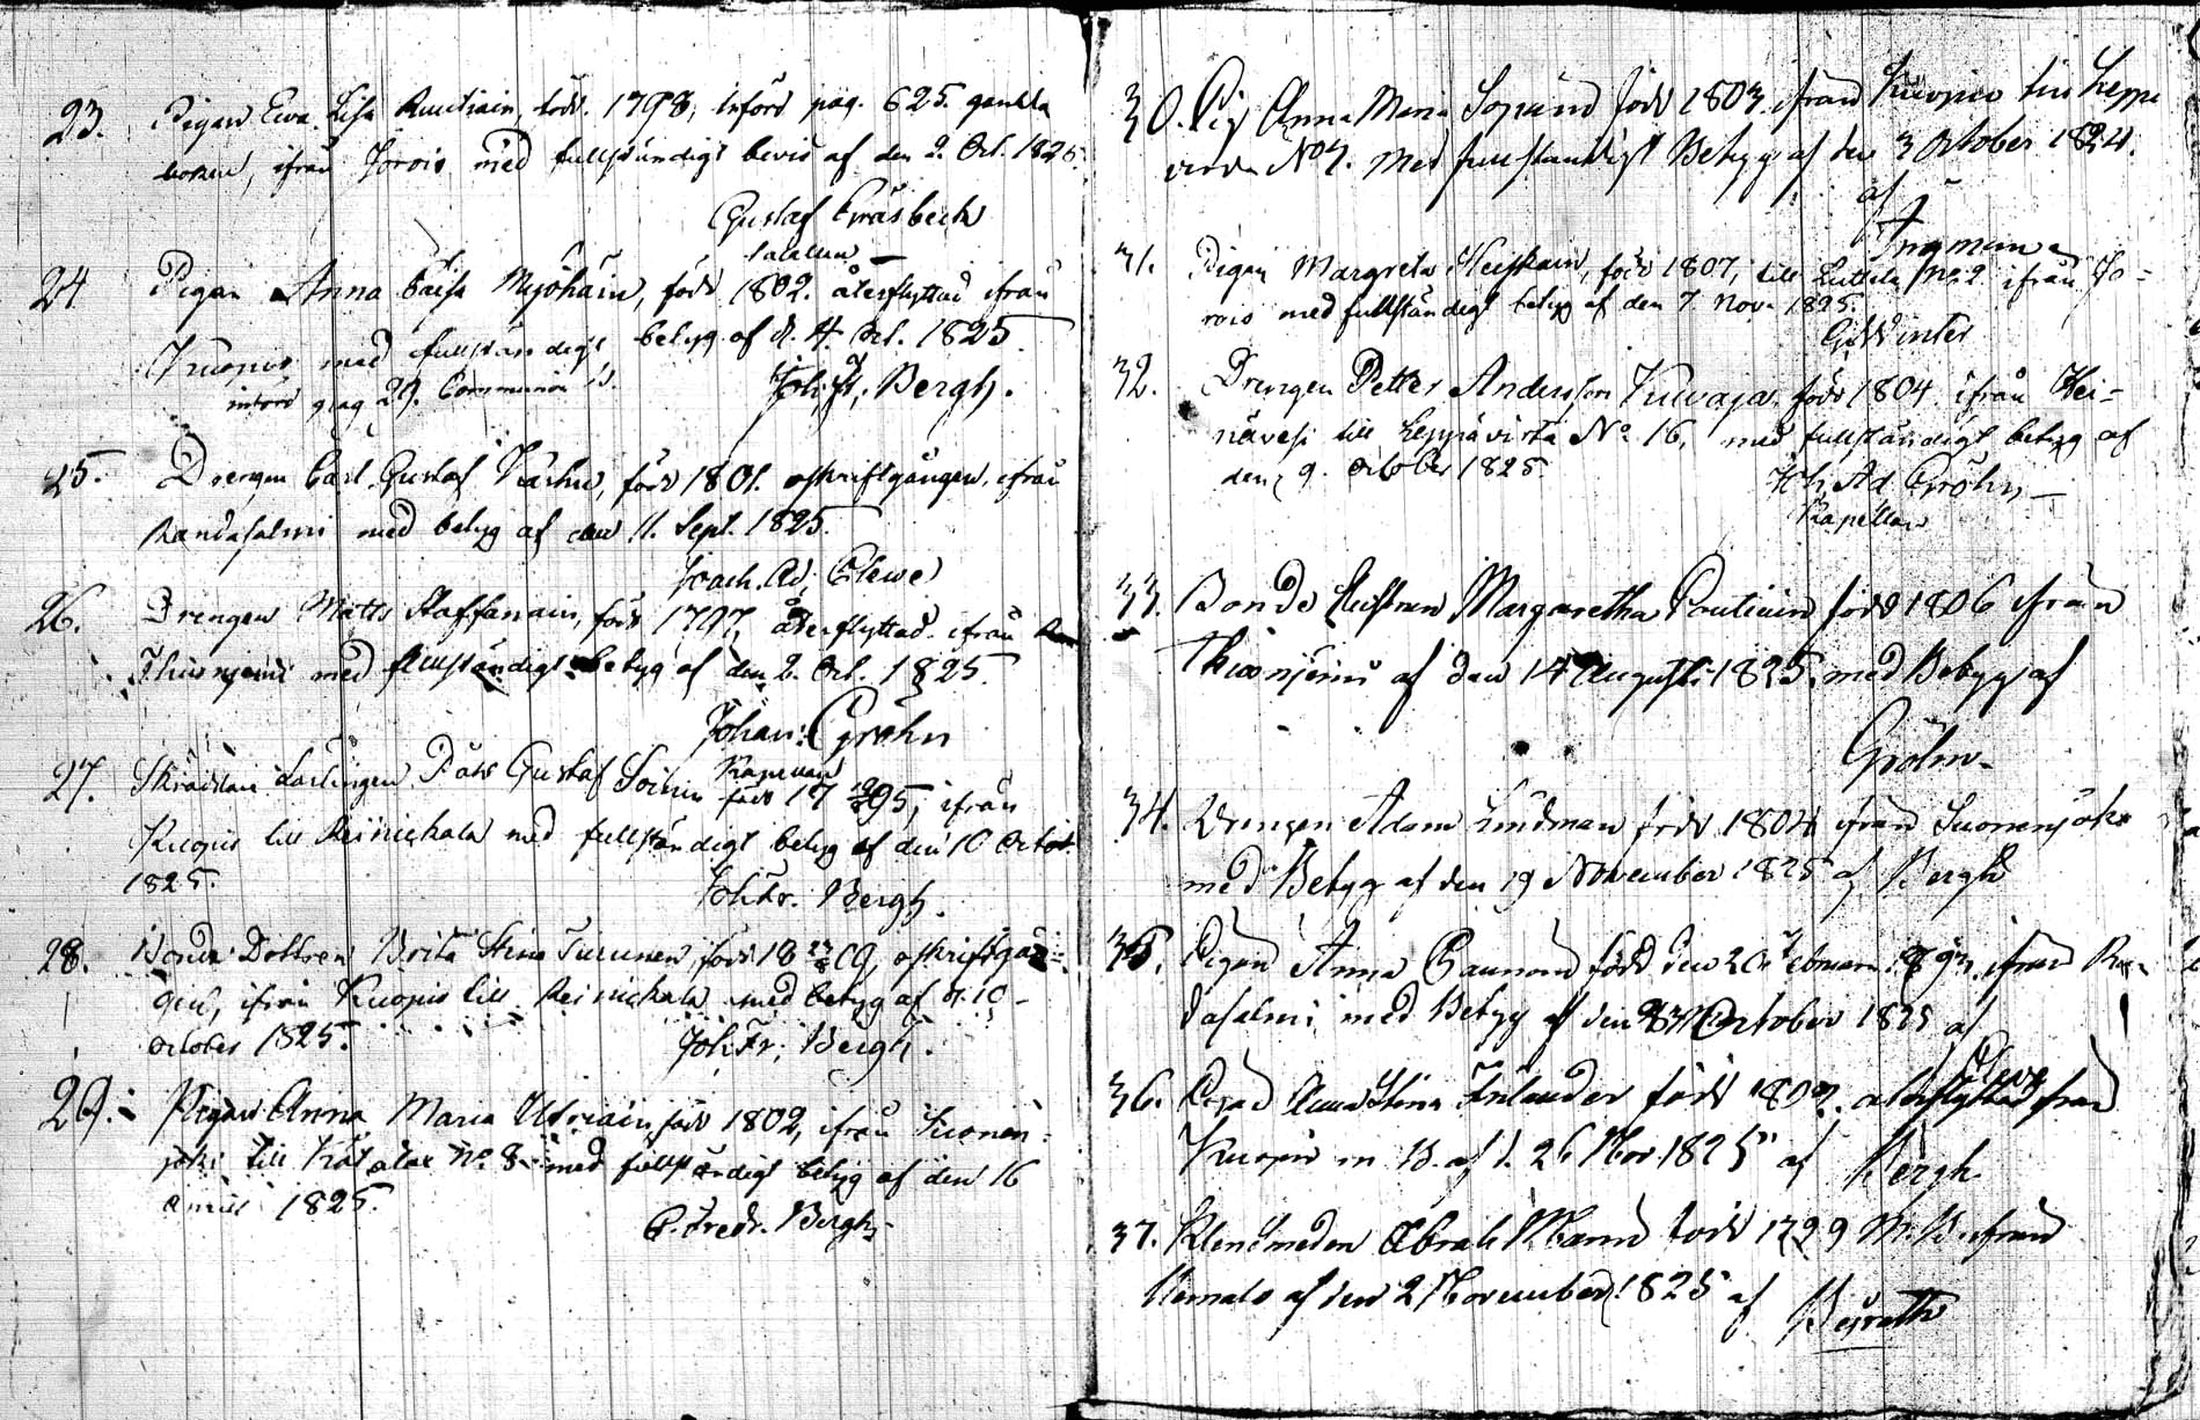 23. Pigan Ewa Lisa Rautiain, född. 1798, införd pag. 625. gamla
boken, ifrån Jorois med fullständigt bevis af den 2. Oct. 1825.
Gustaf Gräsbeck
24 Pigan Anna Caisa Mÿöhäin, född 1802. återflyttad ifrån
Kuopio med fullständigt betyg af d. 4. Oct. 1825.
införd pag 29. Communion B. Joh. Fr. Bergh.
25. Drengen Carl Gustaf Karhu, född 1801. oskriftgången, ifrån
Randasalmi med betyg af den 11. Sept. 1825.
Joach. Ad. Cleve
26. Drengen Matts Staffanain, född 1797, återflyttad ifrån
Thusnjemi med fullständigt betyg af den 2. Oct. 1825.
Johan: Gröhn
Kapellan
27. Skräddare Lärlingen Påhl Gustaf Soinin född 17 95, ifrån
Kuopio till Reinickala med fullständigt betyg af den 10 Octob.
1825.
Joh. Fr. Bergh.
28. Bonde Dottren Brita Stina Turunen, född 18 09, oskriftgån=
gen, ifrån Kuopio till Reinickala med betyg af d. 10
October 1825.
Joh. Fr. Bergh.
29. Pigan Anna Maria Utriain, född 1802, ifrån Suonen=
joki till No. 8. med fullständigt betyg af den 16
1825.
C. Fredr. Bergh
30. Pig Anna Maria född 1803. ifrån Kuopio till Leppä
virda No 7. Med fullständigt Betyg af den 3 October 1824.
af
Ingman
31. Pigan Margreta Heiskain, född 1807, till Luttila No. 2 ifrån Jo=
rois med fullständigt betyg af den 7. Nov. 1825.
G. Winter
32. Drengen Petter Andersson Kuvaja, född 1804. ifrån Hei=
nävesi till Leppävirta No. 16, med fullständigt betyg af
den 9. October 1825.
Ad. Gröhn
Kapellan
33. Bonde Margaretha Poutiain född 1806 ifrån
Thusnjemi af den 14 Augusti 1825, med Betyg af
Gröhn
34. Drengen Adam Lindman född 1804 ifrån Suonenjoki
med Betyg af den 19 November 1825 af Bergh
35. Pigan Anna född den 20 Februari ifrån Ran
dasalmi med Betyg af den October 1825 af
Cleve
36. Pigan Anna Stina Inlander född återflyttad från
Kuopio m. B. af d. 26 Nov. 1825 af Bergh
37. Klensmeden Abrah född 1799 M. B. ifrån
af den 2 November 1825 af